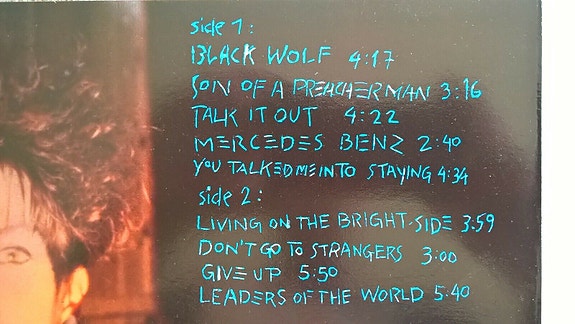 side 1:
BLACK WOLF 4:17
SON OF A PREACHERMAN 3:16
TALK IT OUT 4:22
MERCEDES BENZ 2:40
YOU TALKED ME INTO STAYING 4:34
side 2:
LIVING ON THE BRIGHT-SIDE 3:59
DON'T GO TO STRANGERS 3:00
GIVE UP 5:50
LEADERS OF THE WORLD 5:40